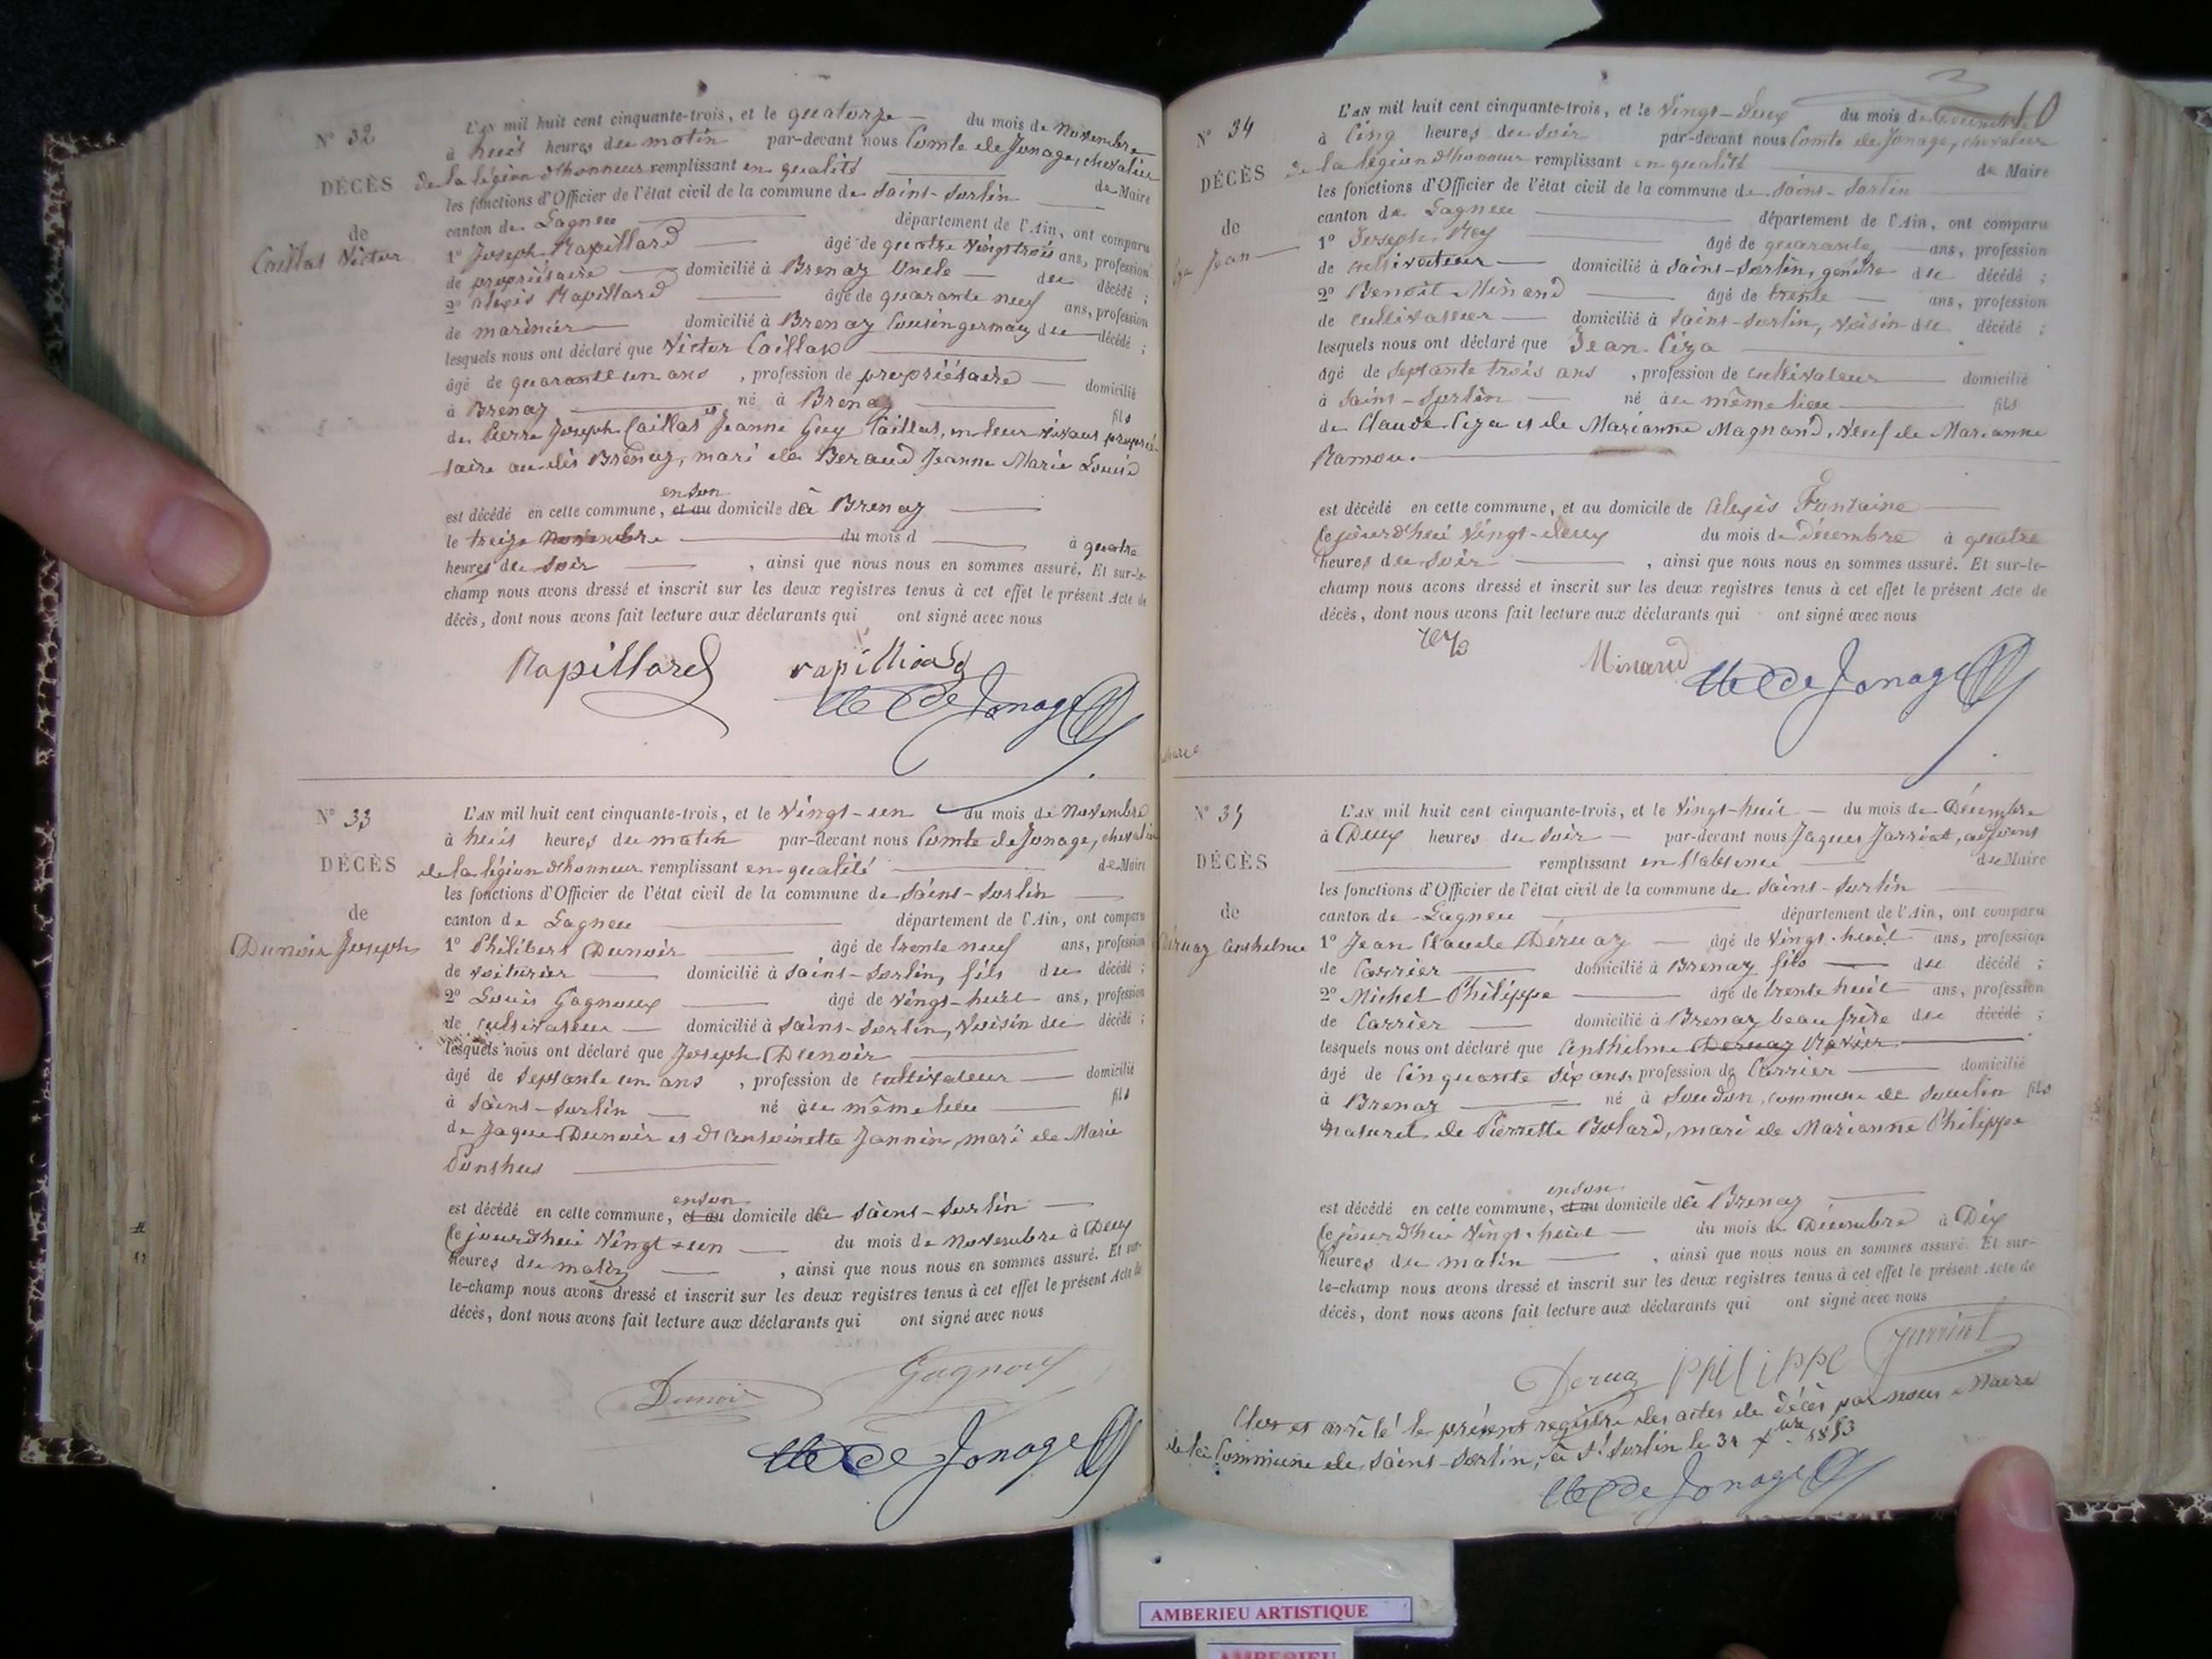 N° 32
DÉCÈS
de
Caillat Victor
L'AN mil huit cent cinquante-trois, et le quatorze du mois de Novembre
à huit heures du matin par-devant nous Comte de Jonage, chevalier
de la légion d'honneur remplissant en qualité de Maire
les fonctions d'Officier de l'état civil de la commune de Saint-Sorlin
canton de Lagnieu département de l'Ain, ont comparu
1° Joseph Rapillard âgé de quatre vingt trois ans, profession
de propriétaire domicilié à Brenaz Oncle du décédé ;
2° Alexis Rapillard âgé de quarante neuf ans, profession
de marinier domicilié à Brenaz Cousin germain du décédé ;
lesquels nous ont déclaré que Victor Caillat
âgé de quarante un ans , profession de propriétaire domicilié
à Brenaz né à Brenaz fils
de Pierre Joseph Caillat et Jeanne Guy Caillat, en leur vivant proprié-
taire au dit Brenaz, mari de Beraud Jeanne Marie Louise
en son
est décédé en cette commune, et au domicile de à Brenaz
le treize Novembre du mois d à quatre
heures du soir , ainsi que nous nous en sommes assuré. Et sur-le-
champ nous avons dressé et inscrit sur les deux registres tenus à cet effet le présent Acte de
décès, dont nous avons fait lecture aux déclarants qui ont signé avec nous
Rapillard rapilliard
Cte de Jonage
N° 33
DÉCÈS
de
Dunoir Joseph
L'AN mil huit cent cinquante-trois, et le Vingt-un du mois de Novembre
à huit heures du matin par-devant nous Comte de Jonage, chevalier
de la légion d'honneur remplissant en qualité de Maire
les fonctions d'Officier de l'état civil de la commune de Saint-Sorlin
canton de Lagnieu département de l'Ain, ont comparu
1° Philibert Dunoir âgé de trente neuf ans, profession
de voiturier domicilié à Saint-Sorlin, fils du décédé ;
2° Louis Gagnoux âgé de vingt-huit ans, profession
de cultivateur domicilié à Saint-Sorlin, Voisin du décédé ;
lesquels nous ont déclaré que Joseph Dunoir
âgé de Septante un ans , profession de cultivateur domicilié
à Saint-Sorlin né au même lieu fils
de Jaque Dunoir et d'Antoinette Jannin, mari de Marie
Ponthus
en son
est décédé en cette commune, et au domicile de à Saint-Sorlin
Cejourd'hui Vingt-un du mois de Novembre à Deux
heures du matin , ainsi que nous nous en sommes assuré. Et sur-
le-champ nous avons dressé et inscrit sur les deux registres tenus à cet effet le présent Acte de
décès, dont nous avons fait lecture aux déclarants qui ont signé avec nous
Dunoir Gagnoux
Cte de Jonage
10
N° 34
DÉCÈS
de
Jean
L'AN mil huit cent cinquante-trois, et le Vingt-Deux du mois de Décembre
à Cinq heures du soir par-devant nous Comte de Jonage, chevalier
de la légion d'honneur remplissant en qualité de Maire
les fonctions d'Officier de l'état civil de la commune de Saint-Sorlin
canton de Lagnieu département de l'Ain, ont comparu
1° Joseph Rey âgé de quarante ans, profession
de cultivateur domicilié à Saint-Sorlin, gendre du décédé ;
2° Benoit Minand âgé de trente ans, profession
de cultivateur domicilié à Saint-Sorlin, voisin du décédé ;
lesquels nous ont déclaré que Jean Ciza
âgé de septante trois ans , profession de cultivateur domicilié
à Saint-Sorlin né au même lieu fils
de Claude Ciza et de Marianne Magnand, Veuf de Marianne
Ramou.
est décédé en cette commune, et au domicile de Alexis Fontaine
Cejourd'hui Vingt-deux du mois de Décembre à quatre
heures du soir , ainsi que nous nous en sommes assuré. Et sur-le-
champ nous avons dressé et inscrit sur les deux registres tenus à cet effet le présent Acte de
décès, dont nous avons fait lecture aux déclarants qui ont signé avec nous
Rey Minand Cte de Jonage
N° 35
DÉCÈS
de
Déruaz Anthelme
L'AN mil huit cent cinquante-trois, et le Vingt-huit du mois de Décembre
à Deux heures du soir par-devant nous Jaques Jarriat, adjoint
remplissant en l'absence du Maire
les fonctions d'Officier de l'état civil de la commune de Saint-Sorlin
canton de Lagnieu département de l'Ain, ont comparu
1° Jean Claude Déruaz âgé de Vingt-huit ans, profession
de Carrier domicilié à Brenaz fils du décédé ;
2° Michel Philippe âgé de trente huit ans, profession
de Carrier domicilié à Brenaz beau frère du décédé ;
lesquels nous ont déclaré que Anthelme Deruaz
âgé de Cinquante six ans, profession de Carrier domicilié
à Brenaz né à Soudon, commune de Souclin fils
naturel de Pierrette Bolard, mari de Marianne Philippe
en son
est décédé en cette commune, et au domicile de à Brenaz
Cejourd'hui Vingt-huit du mois de Décembre à Dix
heures du matin , ainsi que nous nous en sommes assuré. Et sur-
le-champ nous avons dressé et inscrit sur les deux registres tenus à cet effet le présent Acte de
décès, dont nous avons fait lecture aux déclarants qui ont signé avec nous
Deruaz PHILIPPE Jarriat
Clos et arrêté le présent registre des actes de décès par nous Maire
de la Commune de Saint-Sorlin, à St Sorlin le 31 Xbre 1853
Cte de Jonage
AMBERIEU ARTISTIQUE
AMBERIEU